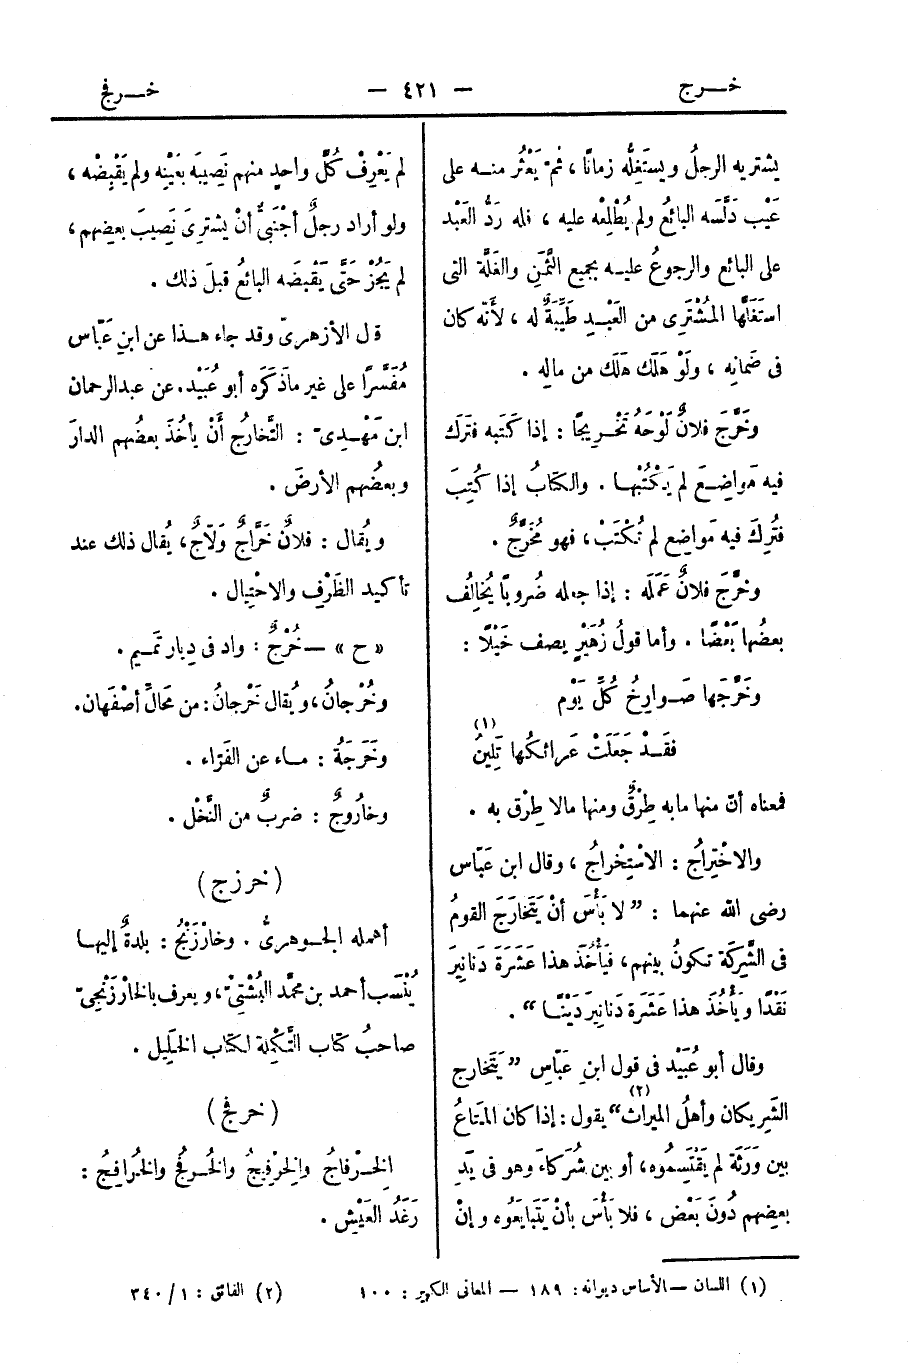 خـــرج
— ٤٢١ —
خـــرفج
يشتريه الرجلُ ويستَغِلُّه زمانًا ، ثم يَعْثُر منــه على
عَيْب دَلَّسَه البائعُ ولم يُطْلِعْه عليه ، فله رَدُّ العَبْد
على البائع والرجوعُ عليــه بجميع الثَّمَنِ والغَلَّة التى
استَغَلَّها المُشْتَرِى من العَبْــدِ طَيِّبَةٌ له ، لأَنّه كان
فى ضَمانِه ، ولَوْ هَلَك هَلَك من مالِه .
وخَرَّجَ فلانٌ لَوْحَهُ تَخْــرِيجًا : إذا كَتَبه فتَرَك
فيه مَواضِــعَ لم يَكْتُبْهــا . والكتابُ إذا كُتِبَ
فتُرِكَ فيه مَواضِع لم تُكْتَبْ ، فهو مُخَرَّجٌ .
وخَرَّجَ فلانٌ عَمَلَه : إذا جعله ضُروبًا يُخالِفُ
بعضُها بَعْضًا . وأما قولُ زُهَيْرٍ يصف خَيْلًا :
وخَرَّجَها صَــوارِخُ كُلِّ يَوْم
فقَــدْ جَعَلَتْ عَرائكُها تَلِينُ (١)
فمعناه أنّ منها مابه طِرْقٌ ومنها مالا طِرْقَ به .
والاخْتِراجُ : الاسْتِخْراجُ ، وقال ابن عَبّاس
رضى الله عنهما : ” لا بَأْسَ أنْ يَتَخَارَجَ القومُ
فى الشَّرِكَة تكونُ بينهم، فيَأْخُذَ هذا عَشَرَةَ دَنانِيرَ
نَقْدًا ويَأْخُذَ هذا عَشَرَة دَنانِيرَ دَيْنًــا “ .
وقال أبو عُبَيْد فى قول ابنِ عَبّاسٍ ” يَتَخارج
الشَّرِيكان وأهلُ الميراث“ (٢) يقول : إذا كان المَتاعُ
بين وَرَثَة لم يَقْتَسِمُوه، أو بين شُرَكاءَ وهو فى يَدِ
بعضِهم دُونَ بَعْض ، فلا بَأْسَ بأنْ يَتَبايَعُوه وإنْ
لم يَعْرِفْ كُلُّ واحدٍ منهم نَصِيبَه بعَيْنِه ولم يَقْبِضْه ،
ولو أراد رجلٌ أجْنَبىٌّ أنْ يشترِىَ نَصِيبَ بعضِهم ،
لم يَجُزْ حَتَّى يَقْبِضَه البائعُ قبلَ ذلك .
قال الأزهرىّ وقد جاء هــذا عن ابنِ عَبّاس
مُفَسَّرًا على غير ماذَكَره أبو عُبَيْد. عن عبدالرحمان
ابن مَهْدِىّ : التَّخارج أنْ يأخُذَ بعضُهم الدارَ
وبعضُهم الأرضَ .
ويُقال : فلانٌ خَرَّاجٌ وَلّاجٌ، يُقال ذلك عند
تأكيد الظَّرْفِ والاحْتِيال .
« ح » – خُرْجٌ : واد فى ديار تَمِيــم .
وخُرْجانُ، ويُقال خَرْجانُ: من مَحالِّ أصْفَهان.
وخَرَجَةُ : مــاء عن الفَرّاء .
وخارُوجٌ : ضربٌ من النَّخْل .
(خرزج)
أهمله الجــوهرىُّ . وخارْزَنْجُ : بلدةٌ إليهــا
يُنْسَب أحمد بن محمَّد البُشْتِىّ، ويعرف بالخارْزَنْجِىّ
صاحبُ كتاب التَّكْمِلة لكتاب الخَلِيل .
(خرفج)
الخِــرْفاجُ والخِرْفِيجُ والخُــرفُج والخُرافِجُ :
رَغَدُ العَيْش .
(١) اللسان – الأساس ديوانه: ١٨٩ – المعانى الكبير : ١٠٠
(٢) الفائق : ١/٣٤٠